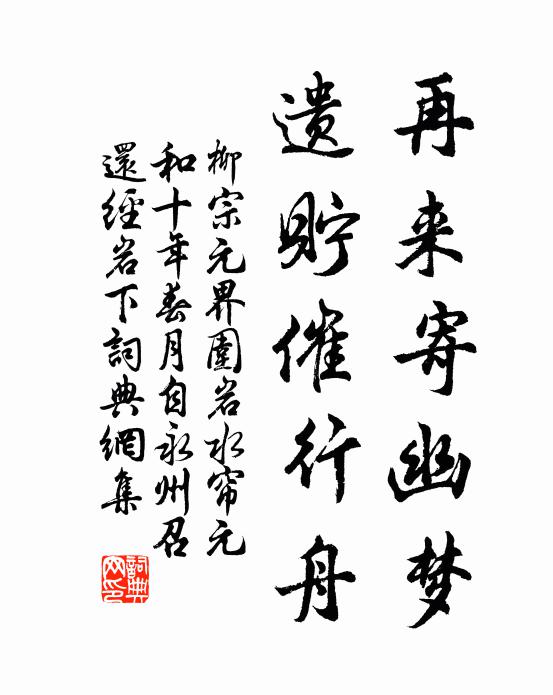 再来寄幽梦
遗贮催行舟
柳宗元界圍岩水帘元
和十年春月自永州召
還經岩下詞典網集
詞典
网印